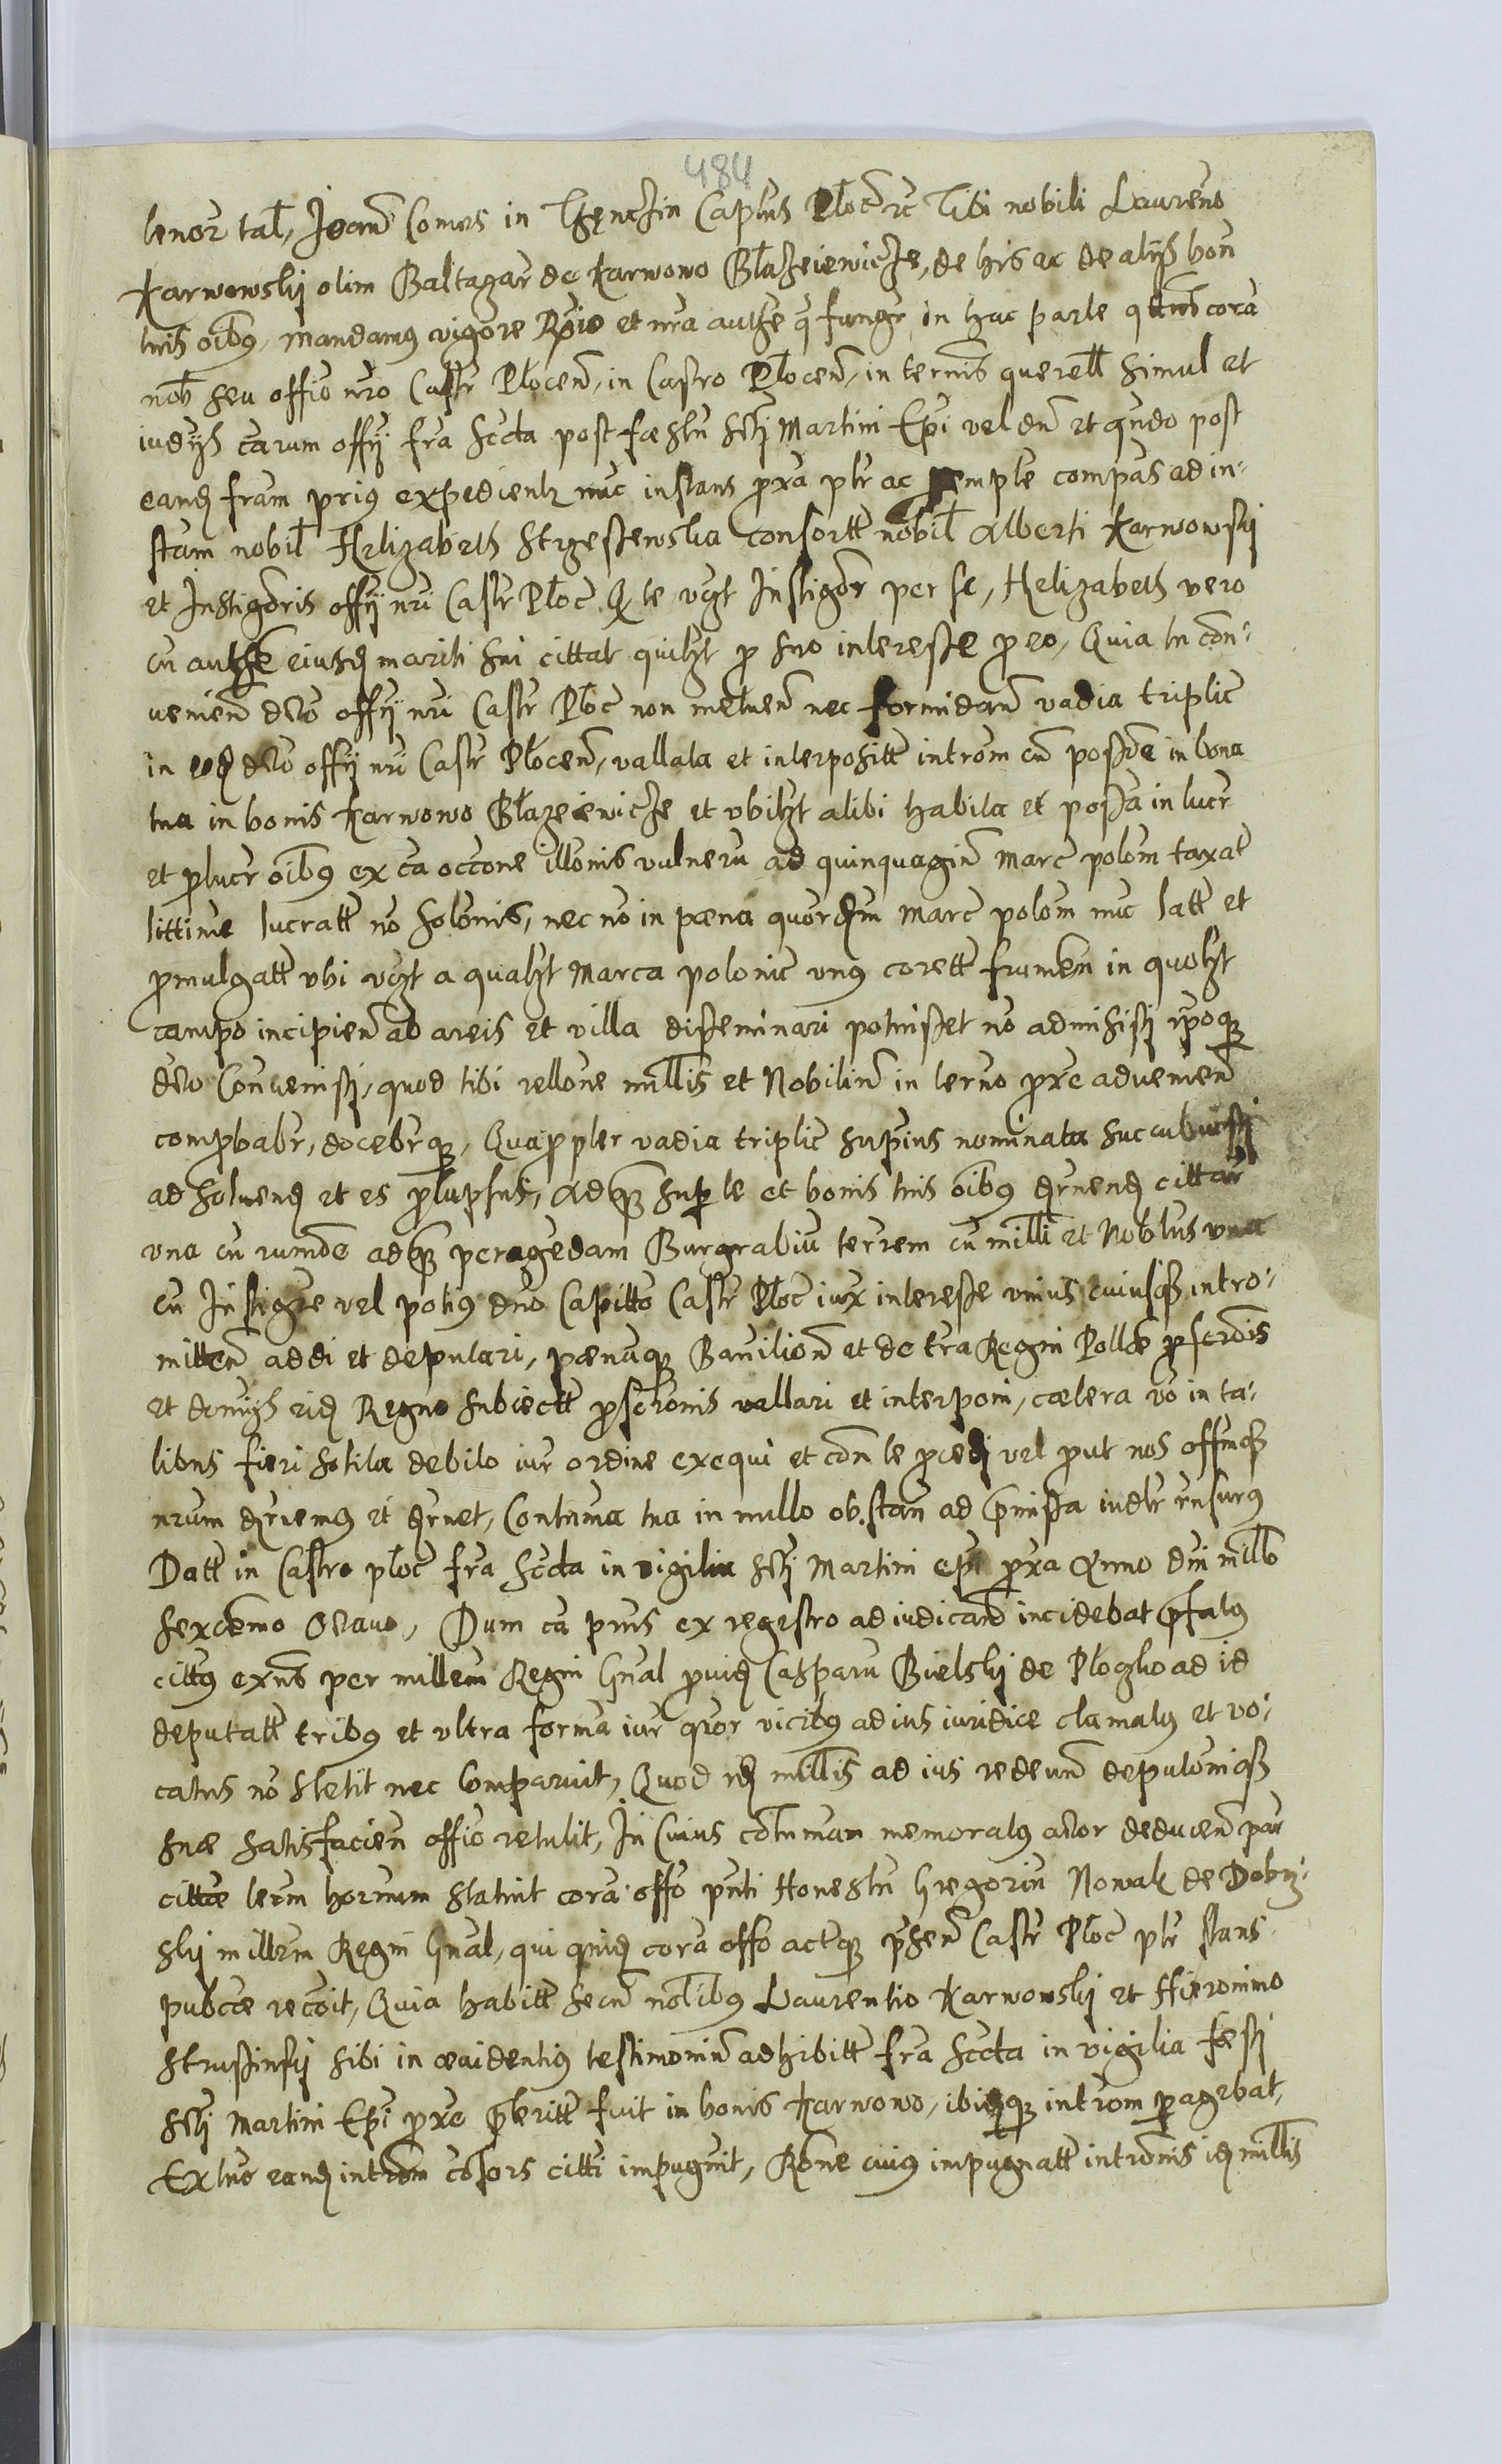 484
tenor tal, Joann Comes in Thęnczin Captus Plocz rc Tibi nobili Laurenō
Karwowskj olim Baltazar de Karwowo Błazeiewicze, de his ac de alijs bon
tuis oībq, mandamq vigore Rgio et nra authe q fungr in hac parte qttnus corā
nob seu offio nro Castr Plocen, in Castro Plocen, in termis querell simul et
iudijs earum offij fra secda post fæstu sctj Martini Epi vel dū et qndo post
eand fram priq expedientr nuc instans prxa ptr ac pempte compas ad in-
stam nobil Helizabeth Strzeszewska consortt nobil Alberti Karwowskj
et Instigoris offij nri Castr Ploc Q te vgt Instigor per se, Helizabeth vero
cu authe eiusd mariti sui cittat quilzt p suo interesse p eo, Quia tu con-
uenien dcto offij nri Castr Ploc non metuen nec formidan vadia triplic
in eod dcto offij nri Castr Plocen, vallata et interpositt introm cū possōe in bona
tua in bonis Karwowo Błazeiewicze et vbilzt alibi habita et possa in lucr
et plucr oībq ex ca occone illonis vulneru ad quinquagin marc polom taxat
littime lucratt no solonis, nec no in pæna quordm marc polom nuc latt et
pmulgatt vbi vgt a qualzt marca polonic vnq corett frumen in quolzt
campo incipien ab areis et villa disseminari potuisset no admisistj ipoqz
dcto Conuenistj, quod tibi rellone millis et Nobilium in termo prxe aduenien
compbabr, docebrqz, Quappter vadia triplic supius nominata succubuistj
ad soluend et es plapsus, Adqz super te et bonis tuis oībq decernend cittar
vna cu rumōe adqz peragedam Burgrabiū terrem cu milli et Noblus vna
cu Instigre vel potiq dno Capitto Castr Ploc iux interesse vnius cuiusqz intro-
mitten addi et deputari, pænāqz Banition et de tra Regni Pollæ pscrōis
et domijs eid Regno subiectt pscronis vallari et interponi, cætera vo in ta-
libus fieri solita debito iur ordine exequi et con te pcedj vel put nos offmqz
nrum decernemq et dcrnet, Contuma tua in nullo obstan ad pmissa iudlr rnsurq
Datt in Castro ploc fra secda in vigilia sctj Martini epi prxa Anno dni millo
sexcēmo Octauo, Dum ca pns ex regestro ad iudicand incidebat pfatq
cittq exns per millem Regni Gnal puid Casparu Bielskj de Plogko ad id
deputatt tribq et vltra forma iur qvor vicibq ad ius iuridice clamatq et vo-
catus no stetit nec Comparuit, Quod id millis ad ius redeun deputoniqz
suæ satisfacien offio retulit, In Cuius contumam memoratq actor deducen par
cittæ term hornum statuit cora offo pnti Honestu Gregoriu Nowak de Dobrz-
skj millem Regni Gnal, qui quid cora offo actqz pnsen Castr Ploc ptr stans
pubcæ recoit, Quia habitt secu nolibq Laurentio Karwowskj et Hieronimo
Strusinskj sibi in euidentiq testimonium adhibitt fra secda in vigilia fæstj
sctj Martini Epi prxe pteritt fuit in bonis Karwowo, ibiqz introm pagebat,
Ex tuc eand introm cosors citti impugnit, Rone cuiq impugnatt intronis id millis